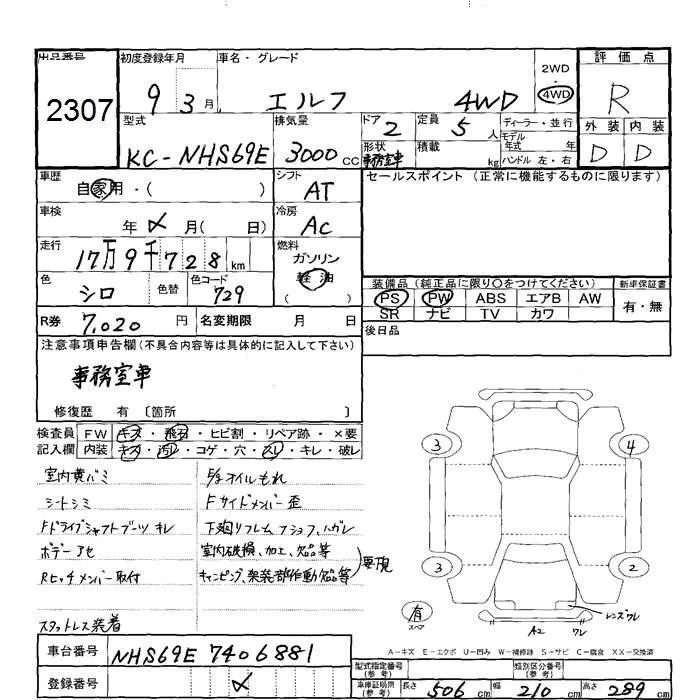 出品番号
2307
初度登録年月
9 3月
車名・グレード
エルフ 4WD
2WD
4WD
評価点
R
外装 内装
D D
型式
KC-NHS69E
排気量
3000CC
ドア 2
形状
事務室車
定員 5人
積載 kg
ディーラー・並行
モデル
年式 年
ハンドル 左・右
車歴
自家用・( )
シフト
AT
セールスポイント (正常に機能するものに限ります)
車検
年 月( 日)
冷房
AC
走行
17万9千728km
燃料
ガソリン
軽油
( )
色
シロ
色替
色コード
729
装備品(純正品に限り〇をつけてください)
新車保証書
PS PW ABS エアB AW
SR ナビ TV カワ
有・無
R券 7,020円
名変期限 月 日
後日品
注意事項申告欄(不具合内容等は具体的に記入して下さい)
事務室車
修復歴 有 〔箇所 〕
検査員
記入欄
FW キズ・飛石・ヒビ割・リペア跡・×要
内装 キズ・汚レ・コゲ・穴・スレ・キレ・破レ
室内黄バミ
シートシミ
Fドライブシャフトブーツ キレ
ボデーアセ
Rヒッチメンバー取付
スタットレス装着
オイルもれ
Fサイドメンバー歪
室内破損、加工、欠品等
キャンピング、架装部作動欠品等
要現
3
4
3
2
有
スペア
A2 ワレ
レンズワレ
A-キズ E-エクボ U-凹み W-補修跡 S-サビ C-腐食 XX-交換済
車台番号
NHS69E 7406881
登録番号
型式指定番号
(参考)
類別区分番号
(参考)
車庫証明用
(参考)
長さ 506cm
幅 210cm
高さ 289cm